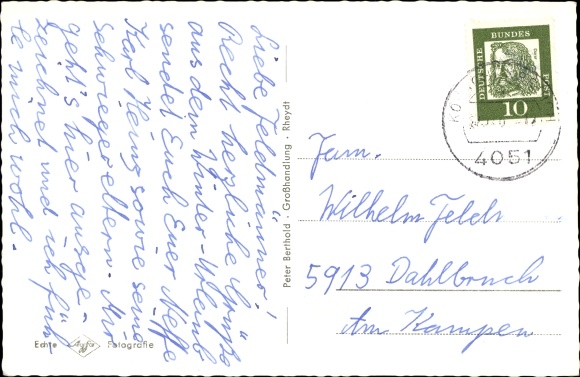 Liebe Feldmänner!
Recht herzliche Grüße
aus dem Winter-Urlaub
sendet Euch Euer Neffe
Karl Heinz sowie seine
Schwiegereltern. Mir
geht's hier ausge-
zeichnet und ich füh-
le mich wohl.
Echte Agfa Fotografie
Peter Berthold · Großhandlung · Rheydt
DEUTSCHE BUNDESPOST
Dürer
10
4051
Fam.
Wilhelm
5913 Dahlbruch
Am Kampen